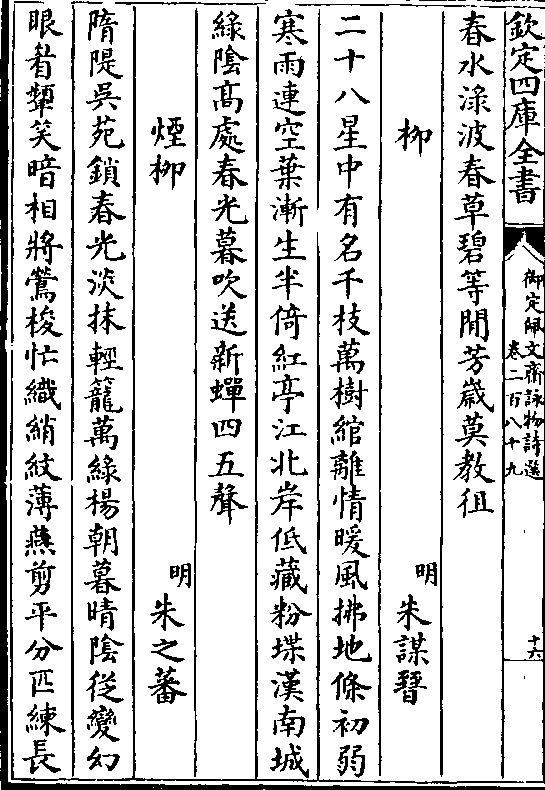 欽定四庫全書
御定佩文齋詠物詩選
卷二百八十九
十六
春水淥波春草碧等閒芳歲莫教徂
柳
明
朱謀㙔
二十八星中有名千枝萬樹綰離情暖風拂地條初弱
寒雨連空葉漸生半倚紅亭江北岸低藏粉堞漢南城
綠陰高處春光暮吹送新蟬四五聲
煙柳
明
朱之蕃
隋隄吳苑鎖春光淡抹輕籠萬綠楊朝暮晴陰從變幻
眼看顰笑暗相將鶯梭忙織綃紋薄燕剪平分匹練長